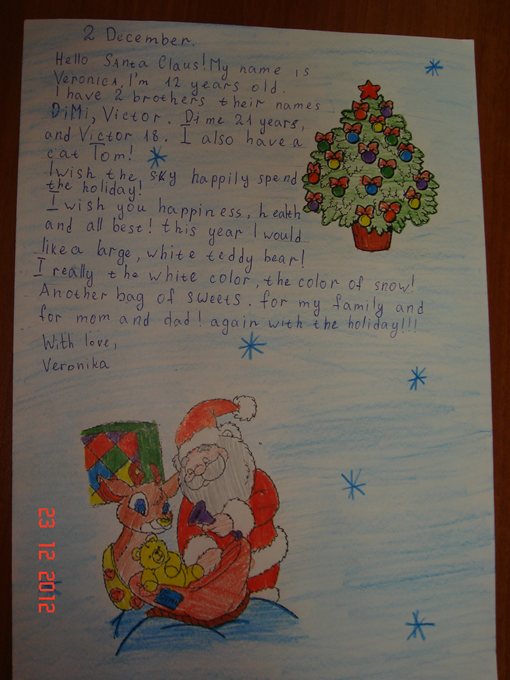 2 December.
Hello Santa Claus! My name is
Veronica, I'm 12 years old.
I have 2 brothers their names
DiMi, Victor. Dime 21 years,
and Victor 18. I also have a
cat Tom!
I wish the sky happily spend
the holiday!
I wish you happiness, health
and all best! this year I would
like a large, white teddy bear!
I really the white color, the color of snow!
Another bag of sweets. for my family and
for mom and dad! again with the holiday!!!
With love,
Veronika
23 12 2012